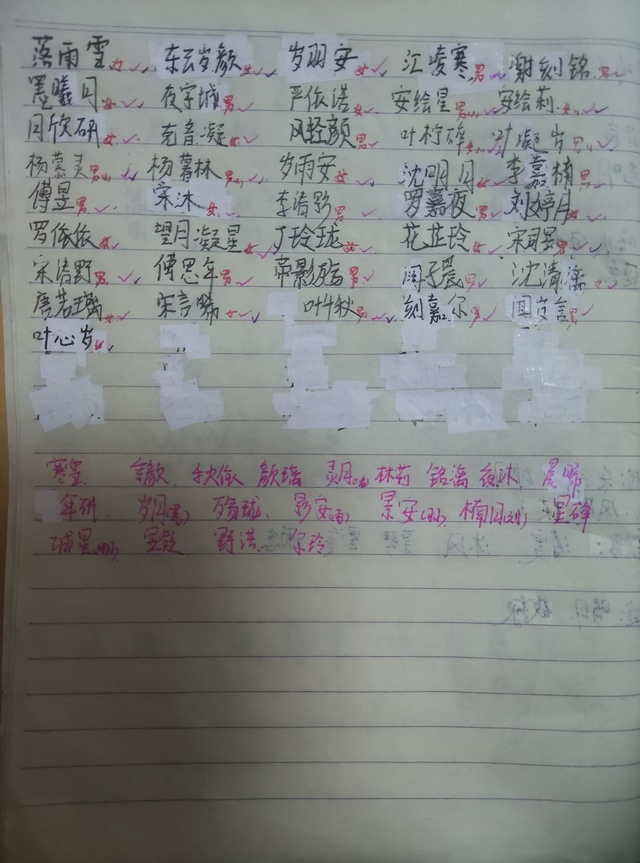 落雨雪女 东云岁颜女 岁羽安女 江凌寒男 谢刻铭男
曦月女 夜宇城男 严依浩 安绘星男 安绘莉女
月欣研女 音凝女 风轻颜男 叶柠碎女 叶凝岁男
杨慕灵男 杨慕林男 岁雨安女 沈明月女 李嘉楠男
傅昱男 宋沐女 李清影男 罗嘉夜男 刘婷月女
罗依依女 望月凝星女 丁玲珑女 花芷玲女 宋司景男
宋清野男 傅思年男 帝影殇男 子晨男 沈清漓
唐若璃女 宋言晞女 叶千秋男 刻嘉尔男 岁言男
叶心岁女
寒雪 言歌 秋依 颜璃 灵月 林莉 铭漓 夜沐 晨晞
年研 岁月 殇珑 影安(雨) 景安(羽) 楠月(刘) 星碎
城星 昱凝 野浩 尔玲